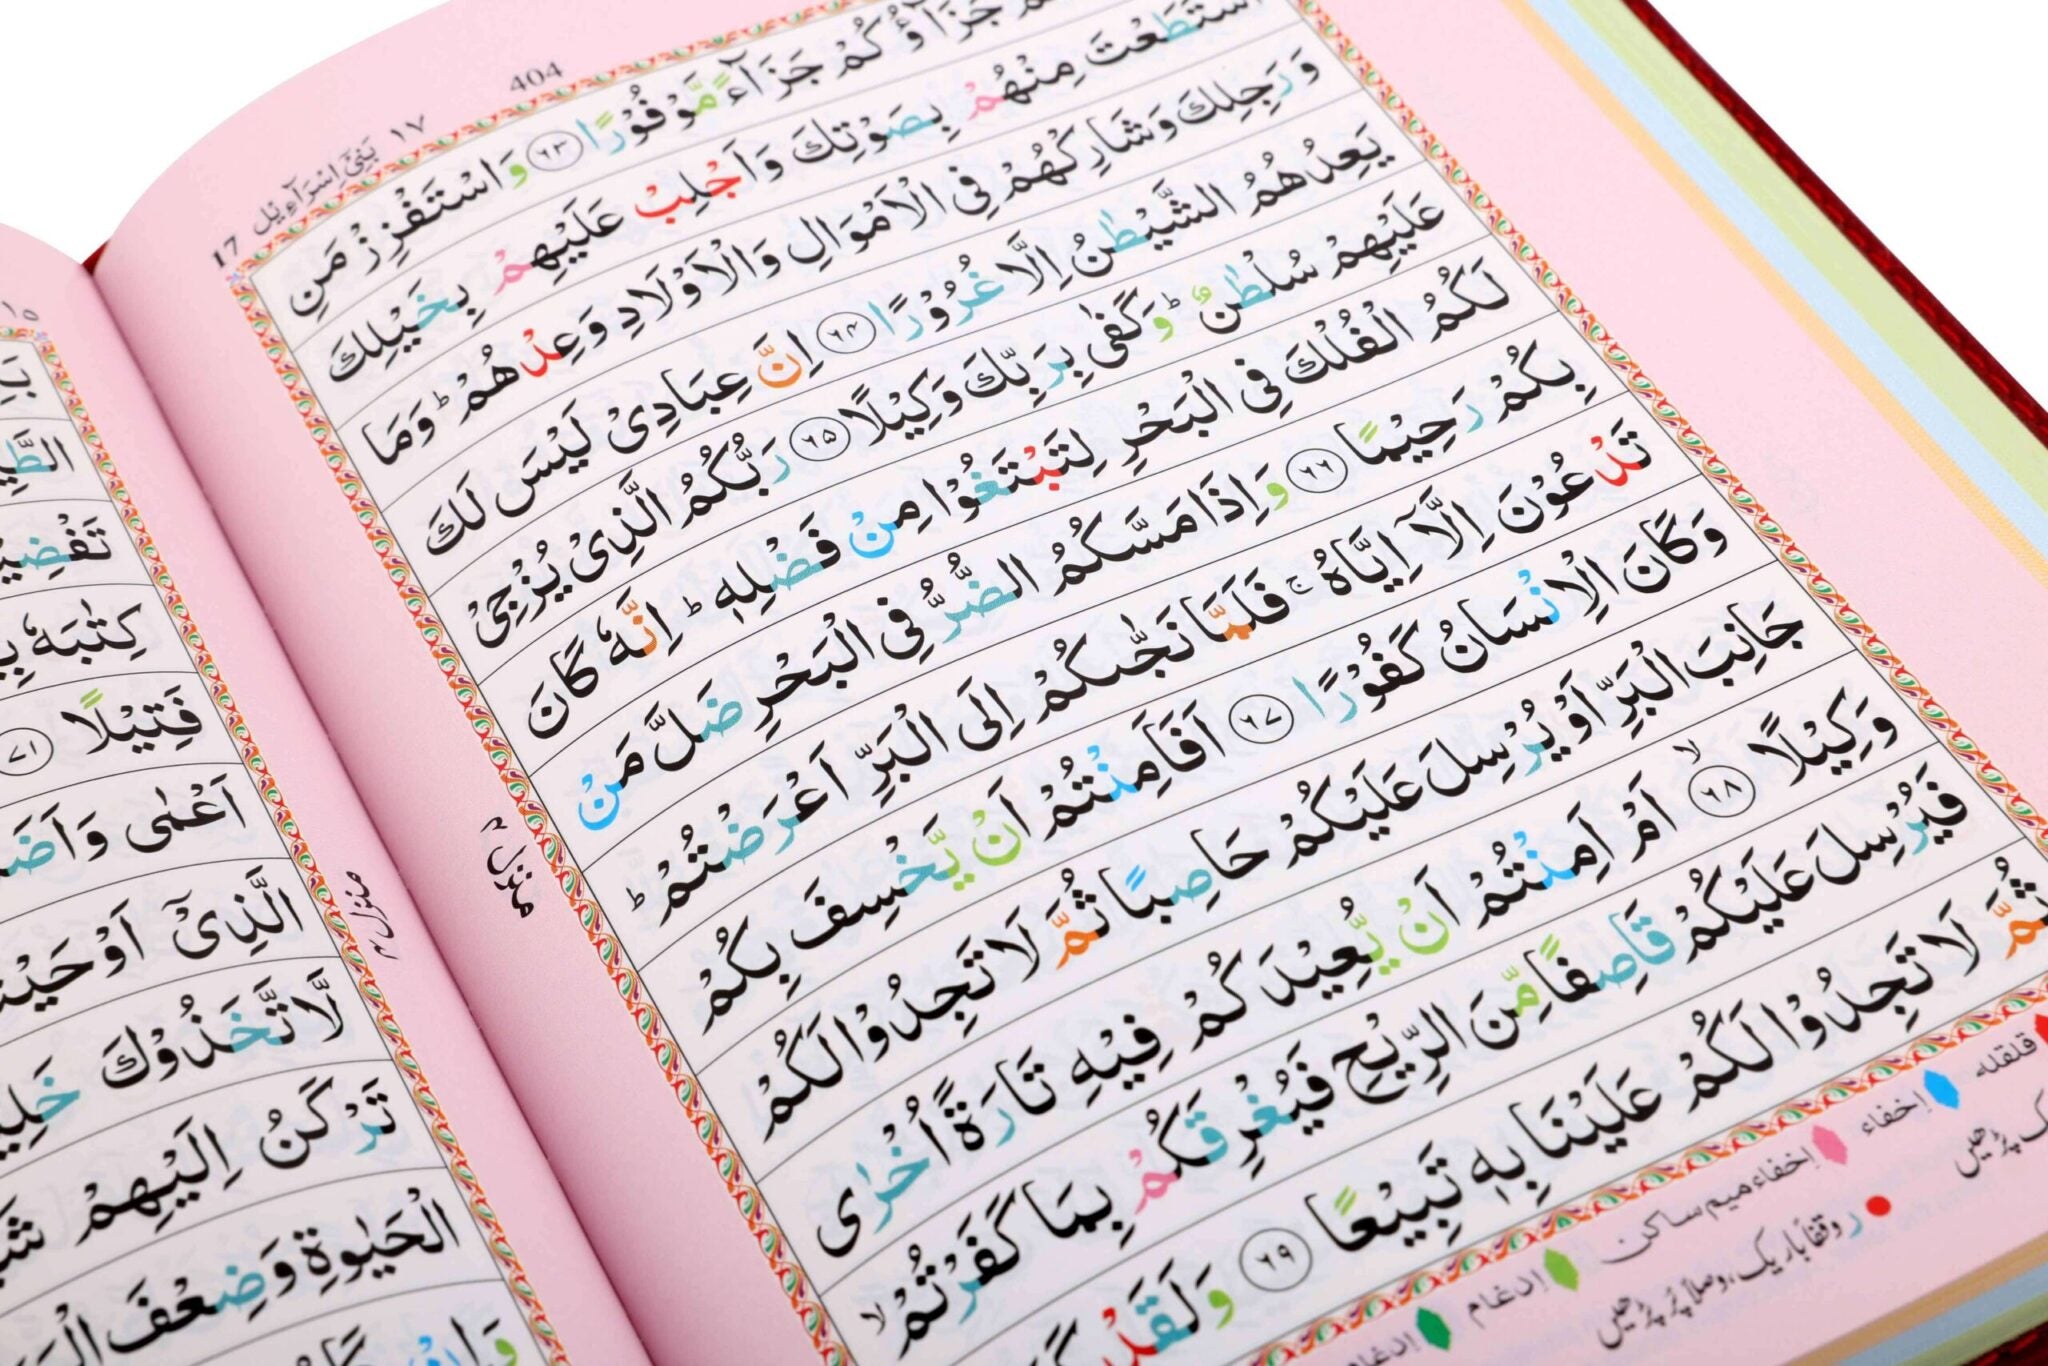 404
17 بَنِيْٓ اِسْرَآءِيْل ١٧
جَزَآؤُكُمْ جَزَآءً مَّوْفُوْرًا ۶۳ وَاسْتَفْزِزْ مَنِ
اسْتَطَعْتَ مِنْهُمْ بِصَوْتِكَ وَاَجْلِبْ عَلَيْهِمْ بِخَيْلِكَ
وَرَجِلِكَ وَشَارِكْهُمْ فِى الْاَمْوَالِ وَالْاَوْلَادِ وَعِدْهُمْ ؕ وَمَا
يَعِدُهُمُ الشَّيْطٰنُ اِلَّا غُرُوْرًا ۶۴ اِنَّ عِبَادِىْ لَيْسَ لَكَ
عَلَيْهِمْ سُلْطٰنٌ ؕ وَكَفٰى بِرَبِّكَ وَكِيْلًا ۶۵ رَبُّكُمُ الَّذِىْ يُزْجِىْ
لَكُمُ الْفُلْكَ فِى الْبَحْرِ لِتَبْتَغُوْا مِنْ فَضْلِهٖ ؕ اِنَّهٗ كَانَ
بِكُمْ رَحِيْمًا ۶۶ وَاِذَا مَسَّكُمُ الضُّرُّ فِى الْبَحْرِ ضَلَّ مَنْ
تَدْعُوْنَ اِلَّآ اِيَّاهُ ۚ فَلَمَّا نَجّٰىكُمْ اِلَى الْبَرِّ اَعْرَضْتُمْ ؕ
وَكَانَ الْاِنْسَانُ كَفُوْرًا ۶۷ اَفَاَمِنْتُمْ اَنْ يَّخْسِفَ بِكُمْ
جَانِبَ الْبَرِّ اَوْ يُرْسِلَ عَلَيْكُمْ حَاصِبًا ثُمَّ لَا تَجِدُوْا لَكُمْ
وَكِيْلًا ۙ ۶۸ اَمْ اَمِنْتُمْ اَنْ يُّعِيْدَكُمْ فِيْهِ تَارَةً اُخْرٰى
فَيُرْسِلَ عَلَيْكُمْ قَاصِفًا مِّنَ الرِّيْحِ فَيُغْرِقَكُمْ بِمَا كَفَرْتُمْ ۙ
ثُمَّ لَا تَجِدُوْا لَكُمْ عَلَيْنَا بِهٖ تَبِيْعًا ۶۹ وَلَقَدْ
منزل ۴
قلقله
اِخفاء
اِخفاء ميم ساكن
اِدغام
ر وقفاً باریک، وصلاً پُر پڑھیں
تَفْضِيْ
كِتٰبَهٗ
فَتِيْلًا ۷۱
اَعْمٰى وَاَضَ
الَّذِىْٓ اَوْحَيْن
لَّاتَّخَذُوْكَ خَلِيْ
تَرْكَنُ اِلَيْهِمْ شَ
الْحَيٰوةِ وَضِعْفَ الْ
منزل ۴